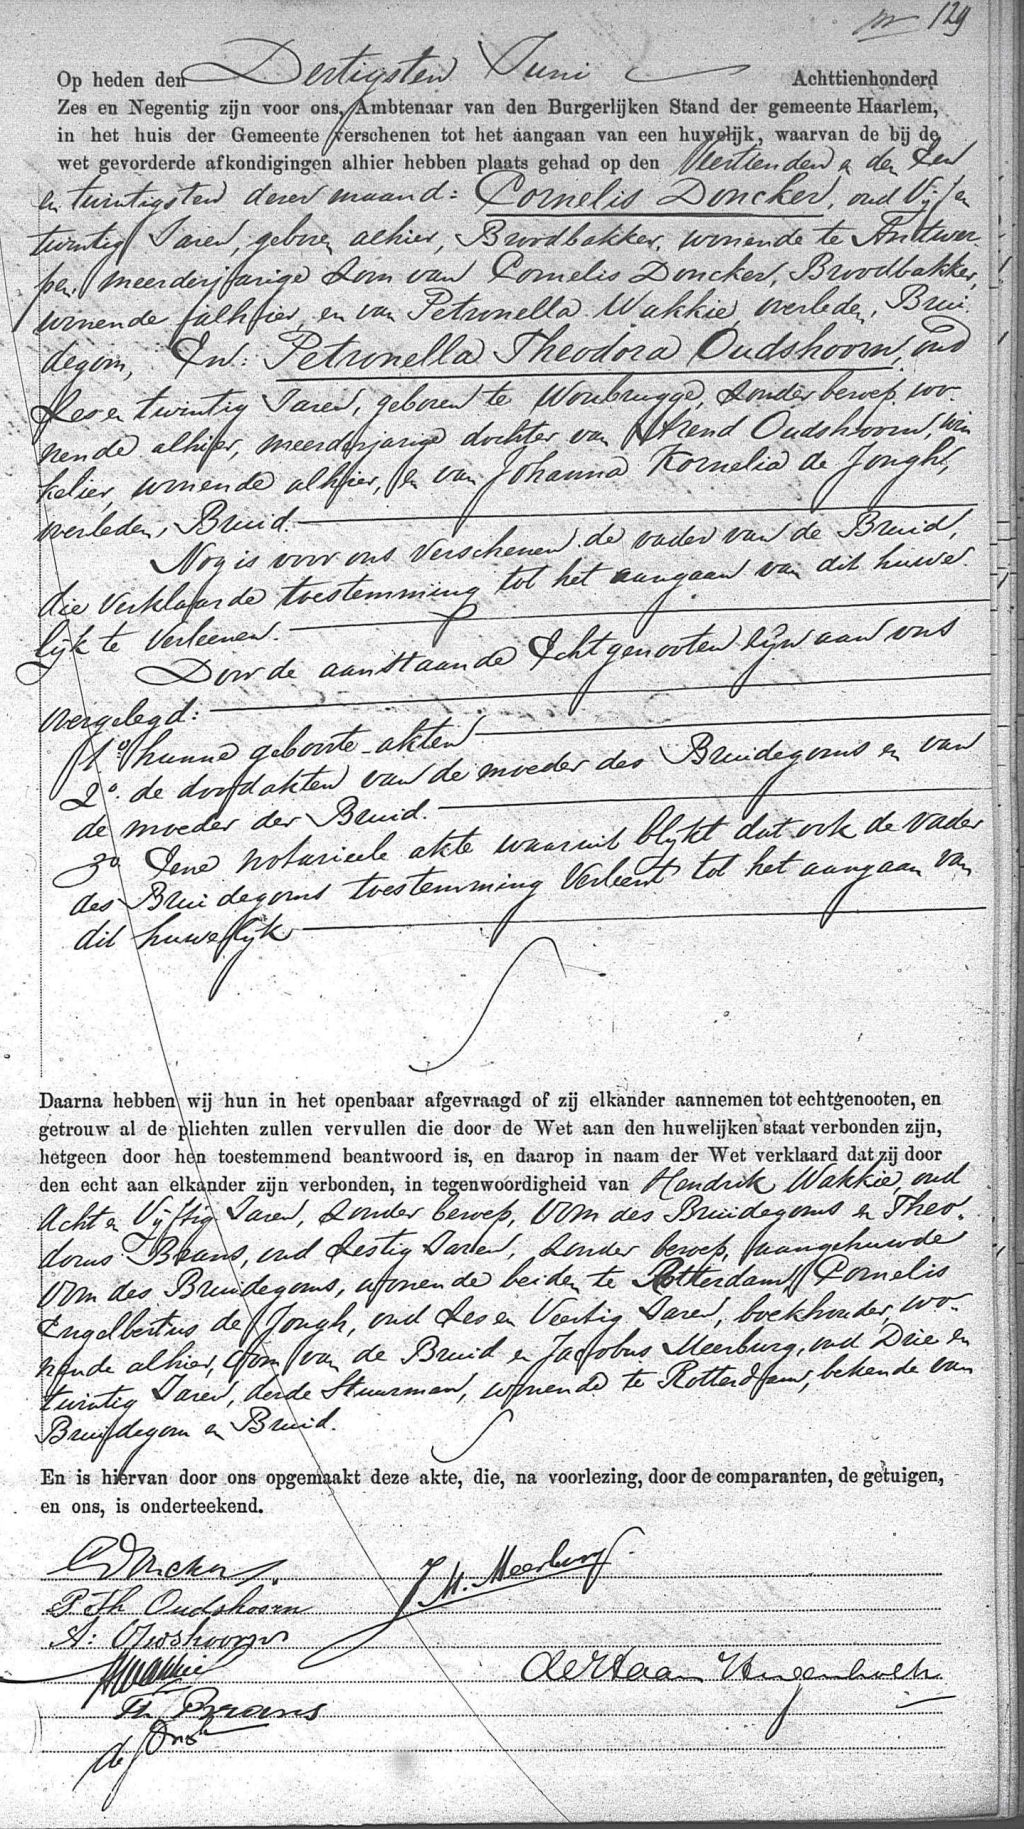 nr 129
Op heden den Dertigsten Juni Achttienhonderd
Zes en Negentig zijn voor ons, Ambtenaar van den Burgerlijken Stand der gemeente Haarlem,
in het huis der Gemeente verschenen tot het aangaan van een huwelijk, waarvan de bij de
wet gevorderde afkondigingen alhier hebben plaats gehad op den Veertienden en den Een
en twintigsten dezer maand: Cornelis Doncker, oud Vijf en
twintig Jaren, geboren alhier, Broodbakker, wonende te Antwer-
pen, meerderjarige Zoon van Cornelis Doncker, Broodbakker,
wonende alhier, en van Petronella Wakkie, overleden, Brui-
degom, En: Petronella Theodora Oudshoorn, oud
Zes en twintig Jaren, geboren te Woubrugge, Zonder beroep, wo-
nende alhier, meerderjarige dochter van Arend Oudshoorn, win
kelier, wonende alhier, en van Johanna Kornelia de Jongh,
overleden, Bruid.
Nog is voor ons verschenen de vader van de Bruid,
die verklaarde toestemming tot het aangaan van dit huwe-
lijk te verleenen.
Door de aanstaande Echtgenooten zijn aan ons
overgelegd:
1o hunne geboorte-akten
2o de doodakten van de moeder des Bruidegoms en van
de moeder der Bruid.
3o Eene notarieele akte waaruit blijkt dat ook de vader
des Bruidegoms toestemming Verleent tot het aangaan van
dit huwelijk
Daarna hebben wij hun in het openbaar afgevraagd of zij elkander aannemen tot echtgenooten, en
getrouw al de plichten zullen vervullen die door de Wet aan den huwelijken staat verbonden zijn,
hetgeen door hen toestemmend beantwoord is, en daarop in naam der Wet verklaard dat zij door
den echt aan elkander zijn verbonden, in tegenwoordigheid van Hendrik Wakkie, oud
Acht en Vijftig Jaren, Zonder beroep, Oom des Bruidegoms en Theo-
dorus Braans, oud Zestig Jaren, Zonder beroep, aangehuwde
Oom des Bruidegoms, wonende beiden te Rotterdam, Cornelis
Engelbertus de Jongh, oud Zes en Veertig Jaren, boekhouder, wo-
nende alhier, Oom van de Bruid en Jacobus Meerburg, oud Drie en
twintig Jaren, derde Stuurman, wonende te Rotterdam, bekende van
Bruidegom en Bruid.
En is hiervan door ons opgemaakt deze akte, die, na voorlezing, door de comparanten, de getuigen,
en ons, is onderteekend.
C Doncker
J. M. Meerburg
P. Th Oudshoorn
A: Oudshoorn
HWakkie
de Haan Hugenholtz
Th Braans
de Jongh